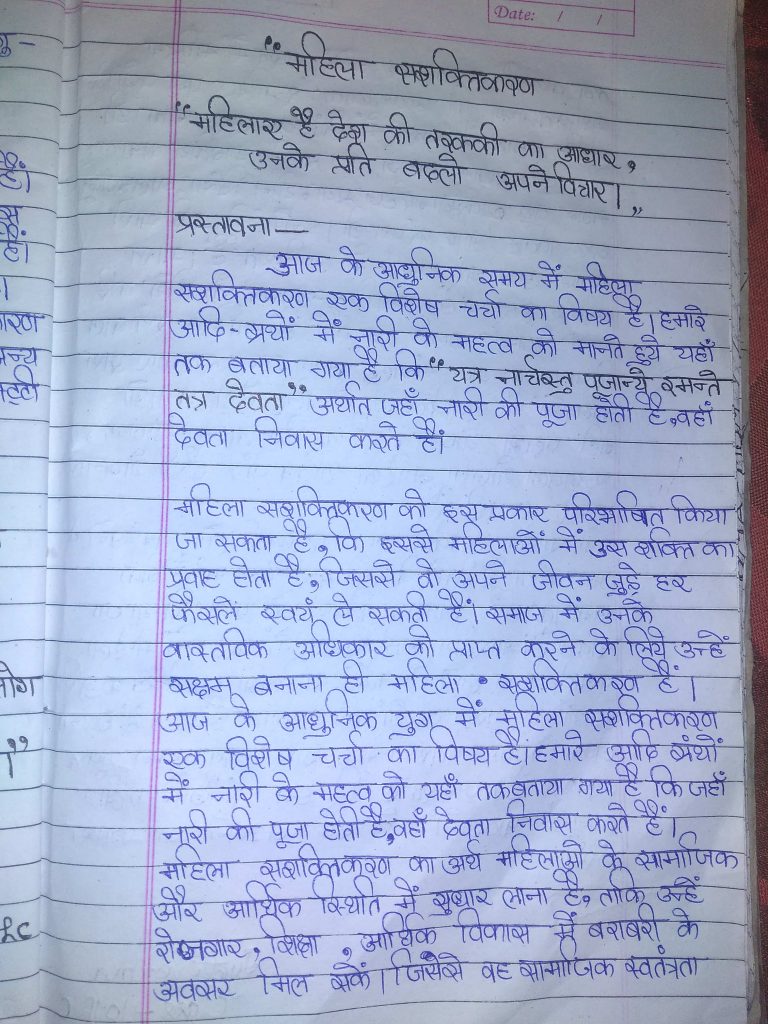 Date: / /
"महिला सशक्तिकरण
"महिलाए है देश की तरक्की का आधार,
उनके प्रति बदलो अपने विचार।"
प्रस्तावना—
आज के आधुनिक समय में महिला
सशक्तिकरण एक विशेष चर्चा का विषय है। हमारे
आदि-ग्रंथों में नारी के महत्व को मानते हुये यहाँ
तक बताया गया है कि "यत्र नार्यस्तु पूजान्ये रमन्ते
तत्र देवता" अर्थात जहाँ नारी की पूजा होती है, वहाँ
देवता निवास करते हैं।
महिला सशक्तिकरण को इस प्रकार परिभाषित किया
जा सकता है, कि इससे महिलाओं में उस शक्ति का
प्रवाह होता है, जिससे वो अपने जीवन जुड़े हर
फैसले स्वयं ले सकती हैं। समाज में उनके
वास्तविक अधिकार को प्राप्त करने के लिये उन्हें
सक्षम बनाना ही महिला सशक्तिकरण है।
आज के आधुनिक युग में महिला सशक्तिकरण
एक विशेष चर्चा का विषय है। हमारे आदि ग्रंथों
में नारी के महत्व को यहाँ तक बताया गया है कि जहाँ
नारी की पूजा होती है, वहाँ देवता निवास करते हैं।
महिला सशक्तिकरण का अर्थ महिलाओ के सामाजिक
और आर्थिक स्थिति में सुधार लाना है, ताकि उन्हें
रोजगार, शिक्षा, आर्थिक विकास में बराबरी के
अवसर मिल सकें। जिससे वह सामाजिक स्वतंत्रता